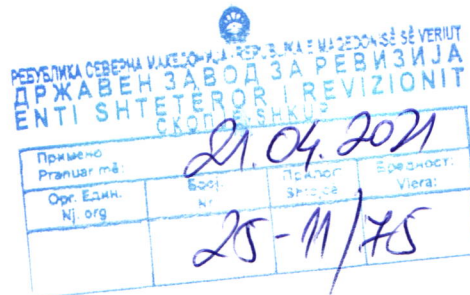 РЕПУБЛИКА СЕВЕРНА МАКЕДОНИЈА - REPUBLIKA E MAQEDONISË SË VERIUT
ДРЖАВЕН ЗАВОД ЗА РЕВИЗИЈА
ENTI SHTETËROR I REVIZIONIT
СКОПЈЕ - SHKUP
Примено
Pranuar më:
21.04.2021
Орг. Един. Број: Прилог: Вредност:
Nj. org Nr Shtojca Vlera:
25-11/75